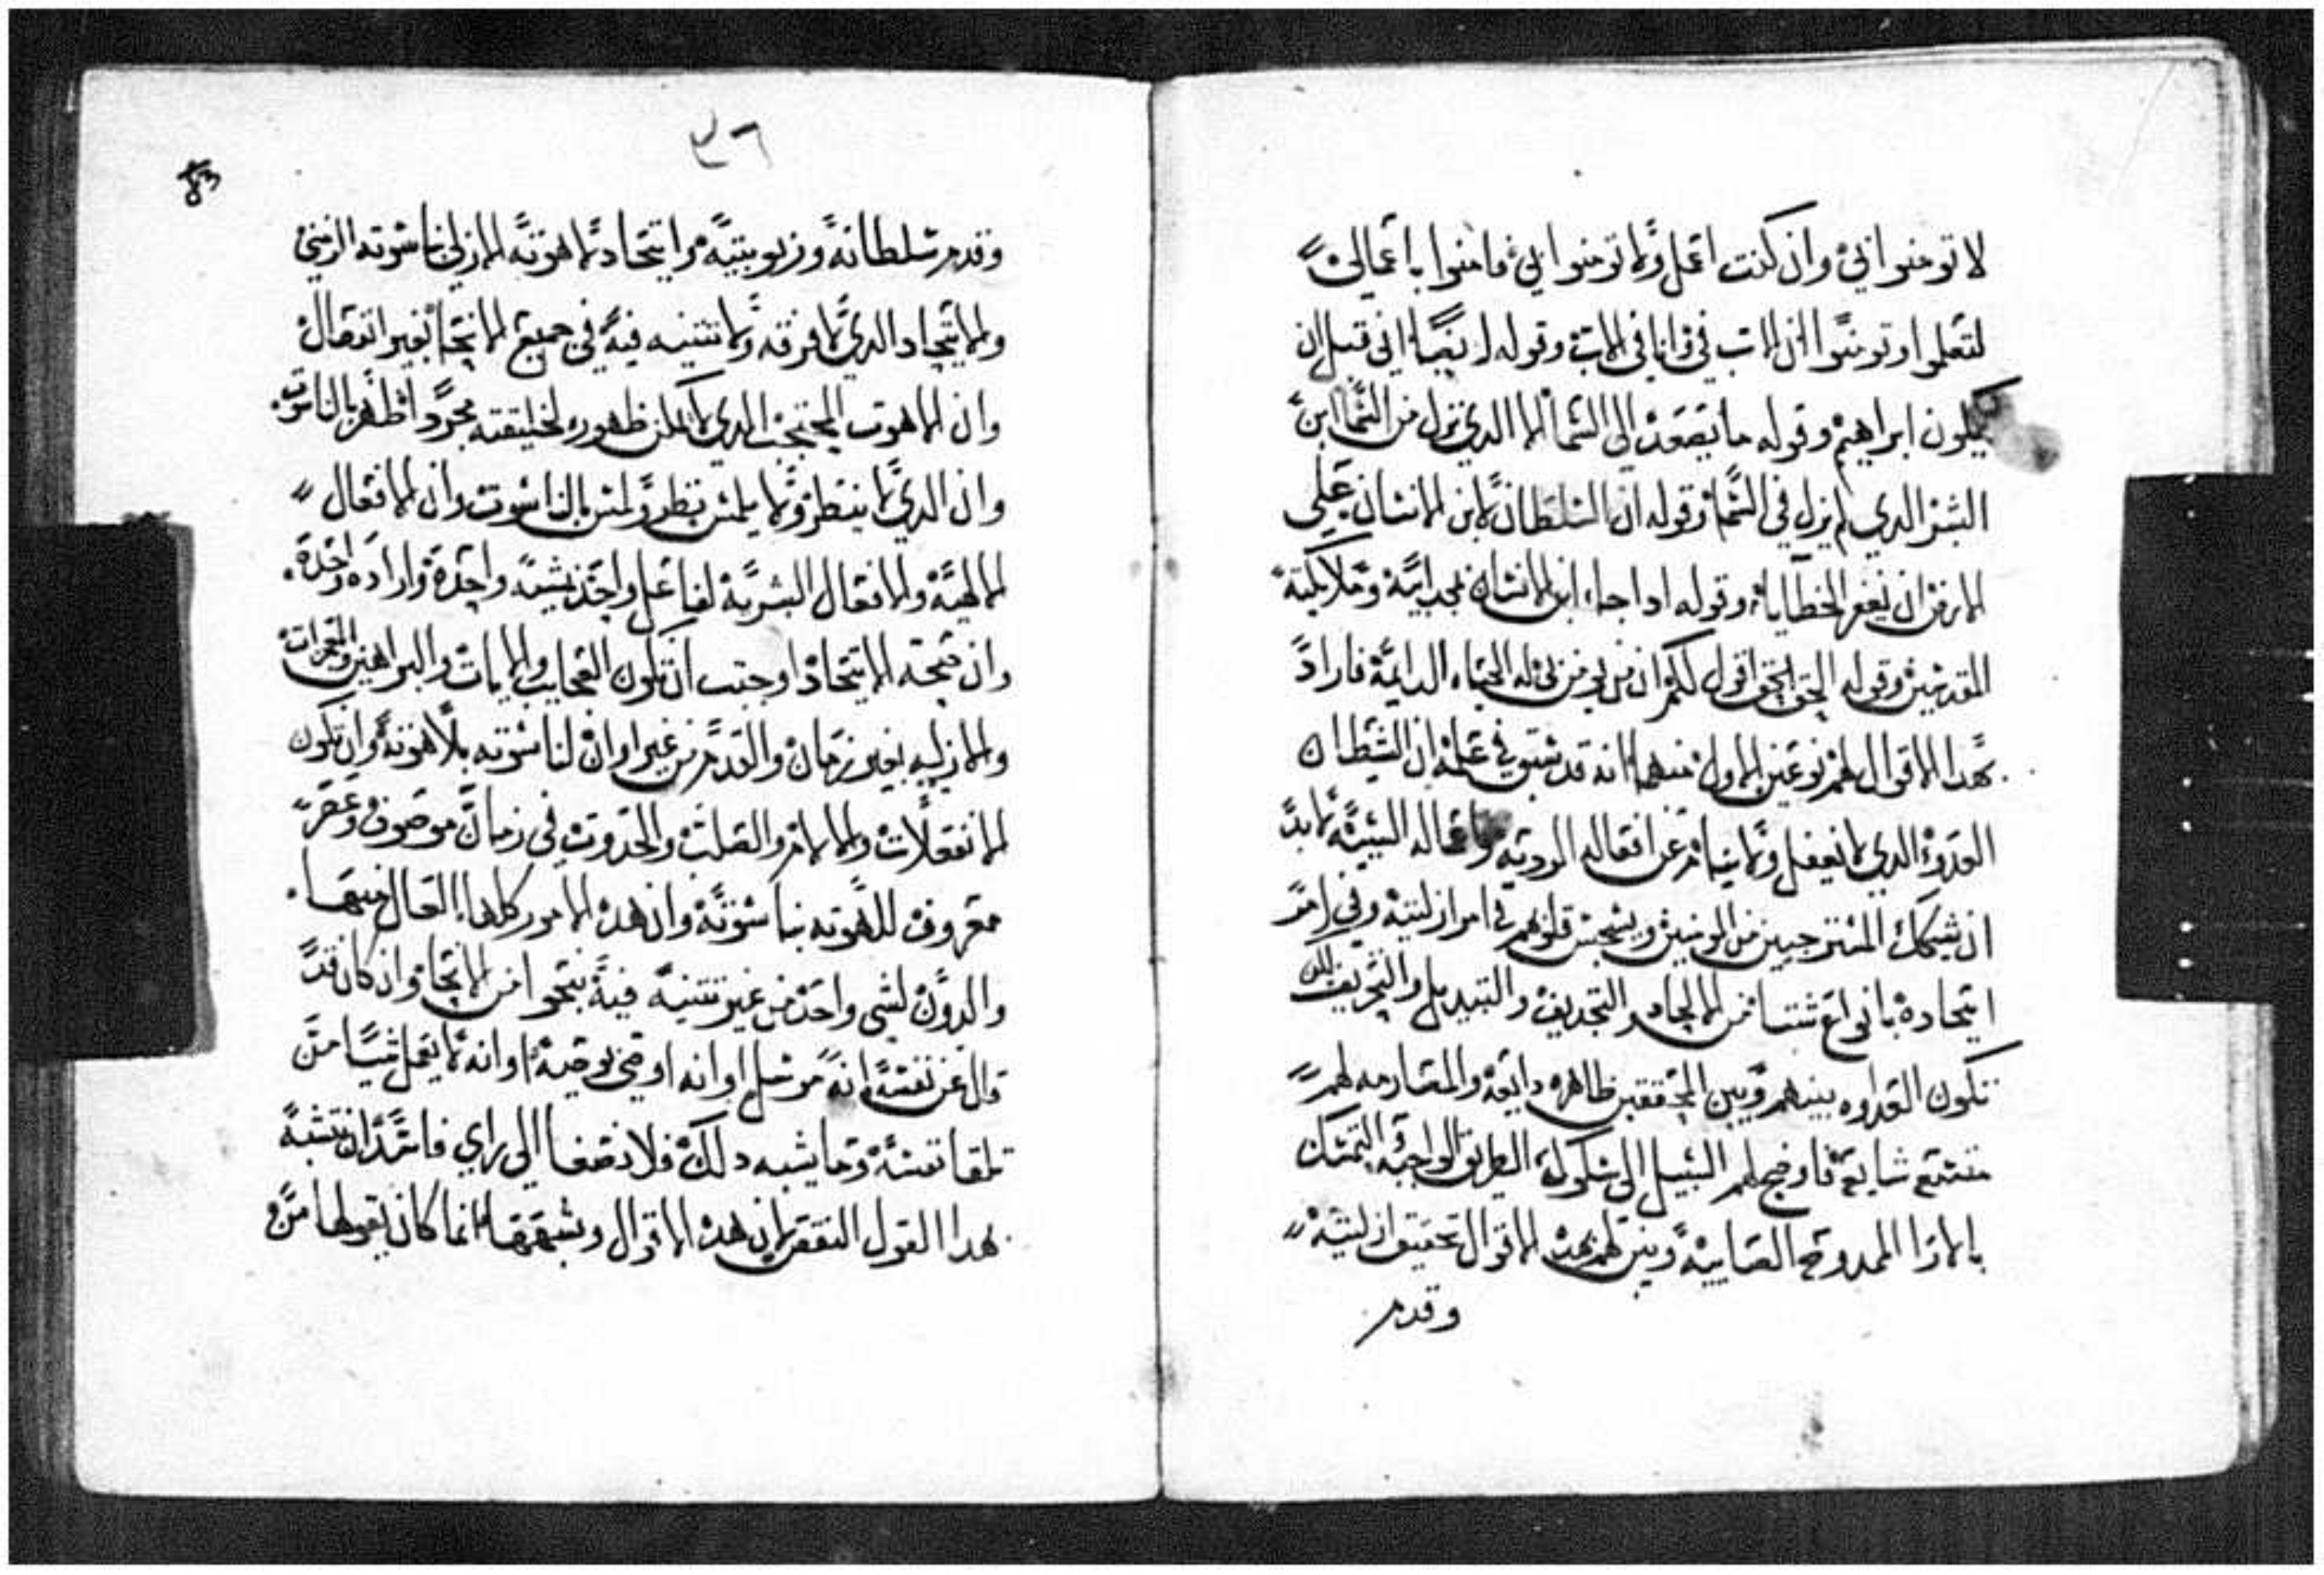 لا تومنوا بي وان كنت اعمل ولا تومنوا بي فامنوا باعمالي
لتعلموا وتومنوا ان الاب في وانا في الاب وقوله ايضا اني قبل ان
يكون ابراهيم وقوله ما يصعد الى السما الا الدي نزل من السما ابن
البشر الدي لم يزل في السما وقوله ان السلطان لابن الانسان على
الارض ان يغفر الخطايا وقوله ادا جا ابن الانسان بمجد ابيه وملايكته
المقدسين وقوله الحق الحق اقول لكم ان من يومن بي له الحياه الدايمه فاراد
بهدا الاقوال لهم نوعين الاول منهما انه قد سبق في علمه ان الشيطان
العدو الدي لا يغفل ولا ينام عن افعاله الرديه واعماله السيئه لابد
ان يشكك المسترجيين من المومنين ويسجس قلوبهم في امر ازليته وفي امر
اتحاده بانواع شتا من الالحاد والتجديف والتبديل والتحريف لكن
تكون العداوه بينهم وبين المحققين ظاهره دايعه والمصارمه لهم
متسع شايعه فاوضح لهم السبيل الى سلوك الطريق الواجبه التمسك
بالارا الممدوحه الصايبه وبين لهم بهده الاقوال تحقيق ازليته
وقدم
٣٦
83
وقدم سلطانه وربوبيته واتحاد لاهوته الازلي بناسوته الزمني
والاتحاد الدي لا فرقه ولا تتنيه فيه في جميع الانحا بغير انفصال
وان اللاهوت المحتجب الدي لا يمكن ظهوره لخليقته مجردا ظهر بالناسوت
وان الدي لا ينظر ولا يلمس نظر ولمس بالناسوت وان الافعال
الالهيه والافعال البشريه لفاعل واحد بمشيه واحده واراده واحده
وان صحة الاتحاد اوجبت ان تكون العجايب والايات والبراهين والمعجزات
والازليه بغير زمان والقدم من غير اوان لناسوته بلاهوته وان تكون
الانفعالات والالام والصلب والحدوت في زمان موصوف وعصر
معروف للاهوته بناسوته وان هده الامور كلها العال منها
والدون لشي واحد من غير تتنيه فيه بنحوا من الانحا وان كان قد
قال عن نفسه انه مرسل او انه اوصي بوصيه او انه لا يعمل شيا من
تلقا نفسه وما يشبه دلك فلا تضغا الى راي فاسد ان تتشبه
بهدا القول التفقه لان هده الاقوال وشبهها انما كان يقولها من